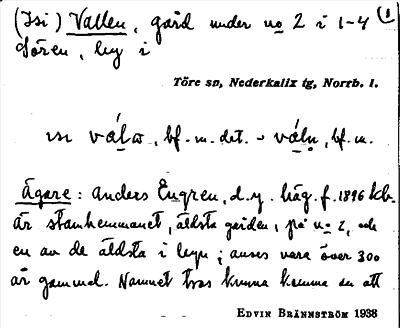 (Isi) Vallen, gård under no 2 i 1-4
Sören, by i
Töre sn, Nederkalix tg, Norrb. l.
isi válω, bf. m. det. - váln̥, bf. m.
Ägare: Anders Engren, d.y. häg. f. 1896
är stamhemmanet, äldsta gården, på no 2, och
en av de äldsta i byn; anses vara över 300
år gammal. Namnet tros kunna komma av att
EDVIN BRÄNNSTRÖM 1938